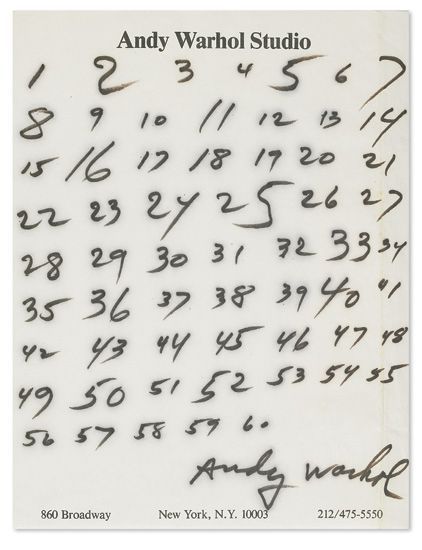 Andy Warhol Studio
1 2 3 4 5 6 7
8 9 10 11 12 13 14
15 16 17 18 19 20 21
22 23 24 25 26 27
28 29 30 31 32 33 34
35 36 37 38 39 40 41
42 43 44 45 46 47 48
49 50 51 52 53 54 55
56 57 58 59 60
Andy Warhol
860 Broadway New York, N.Y. 10003 212/475-5550